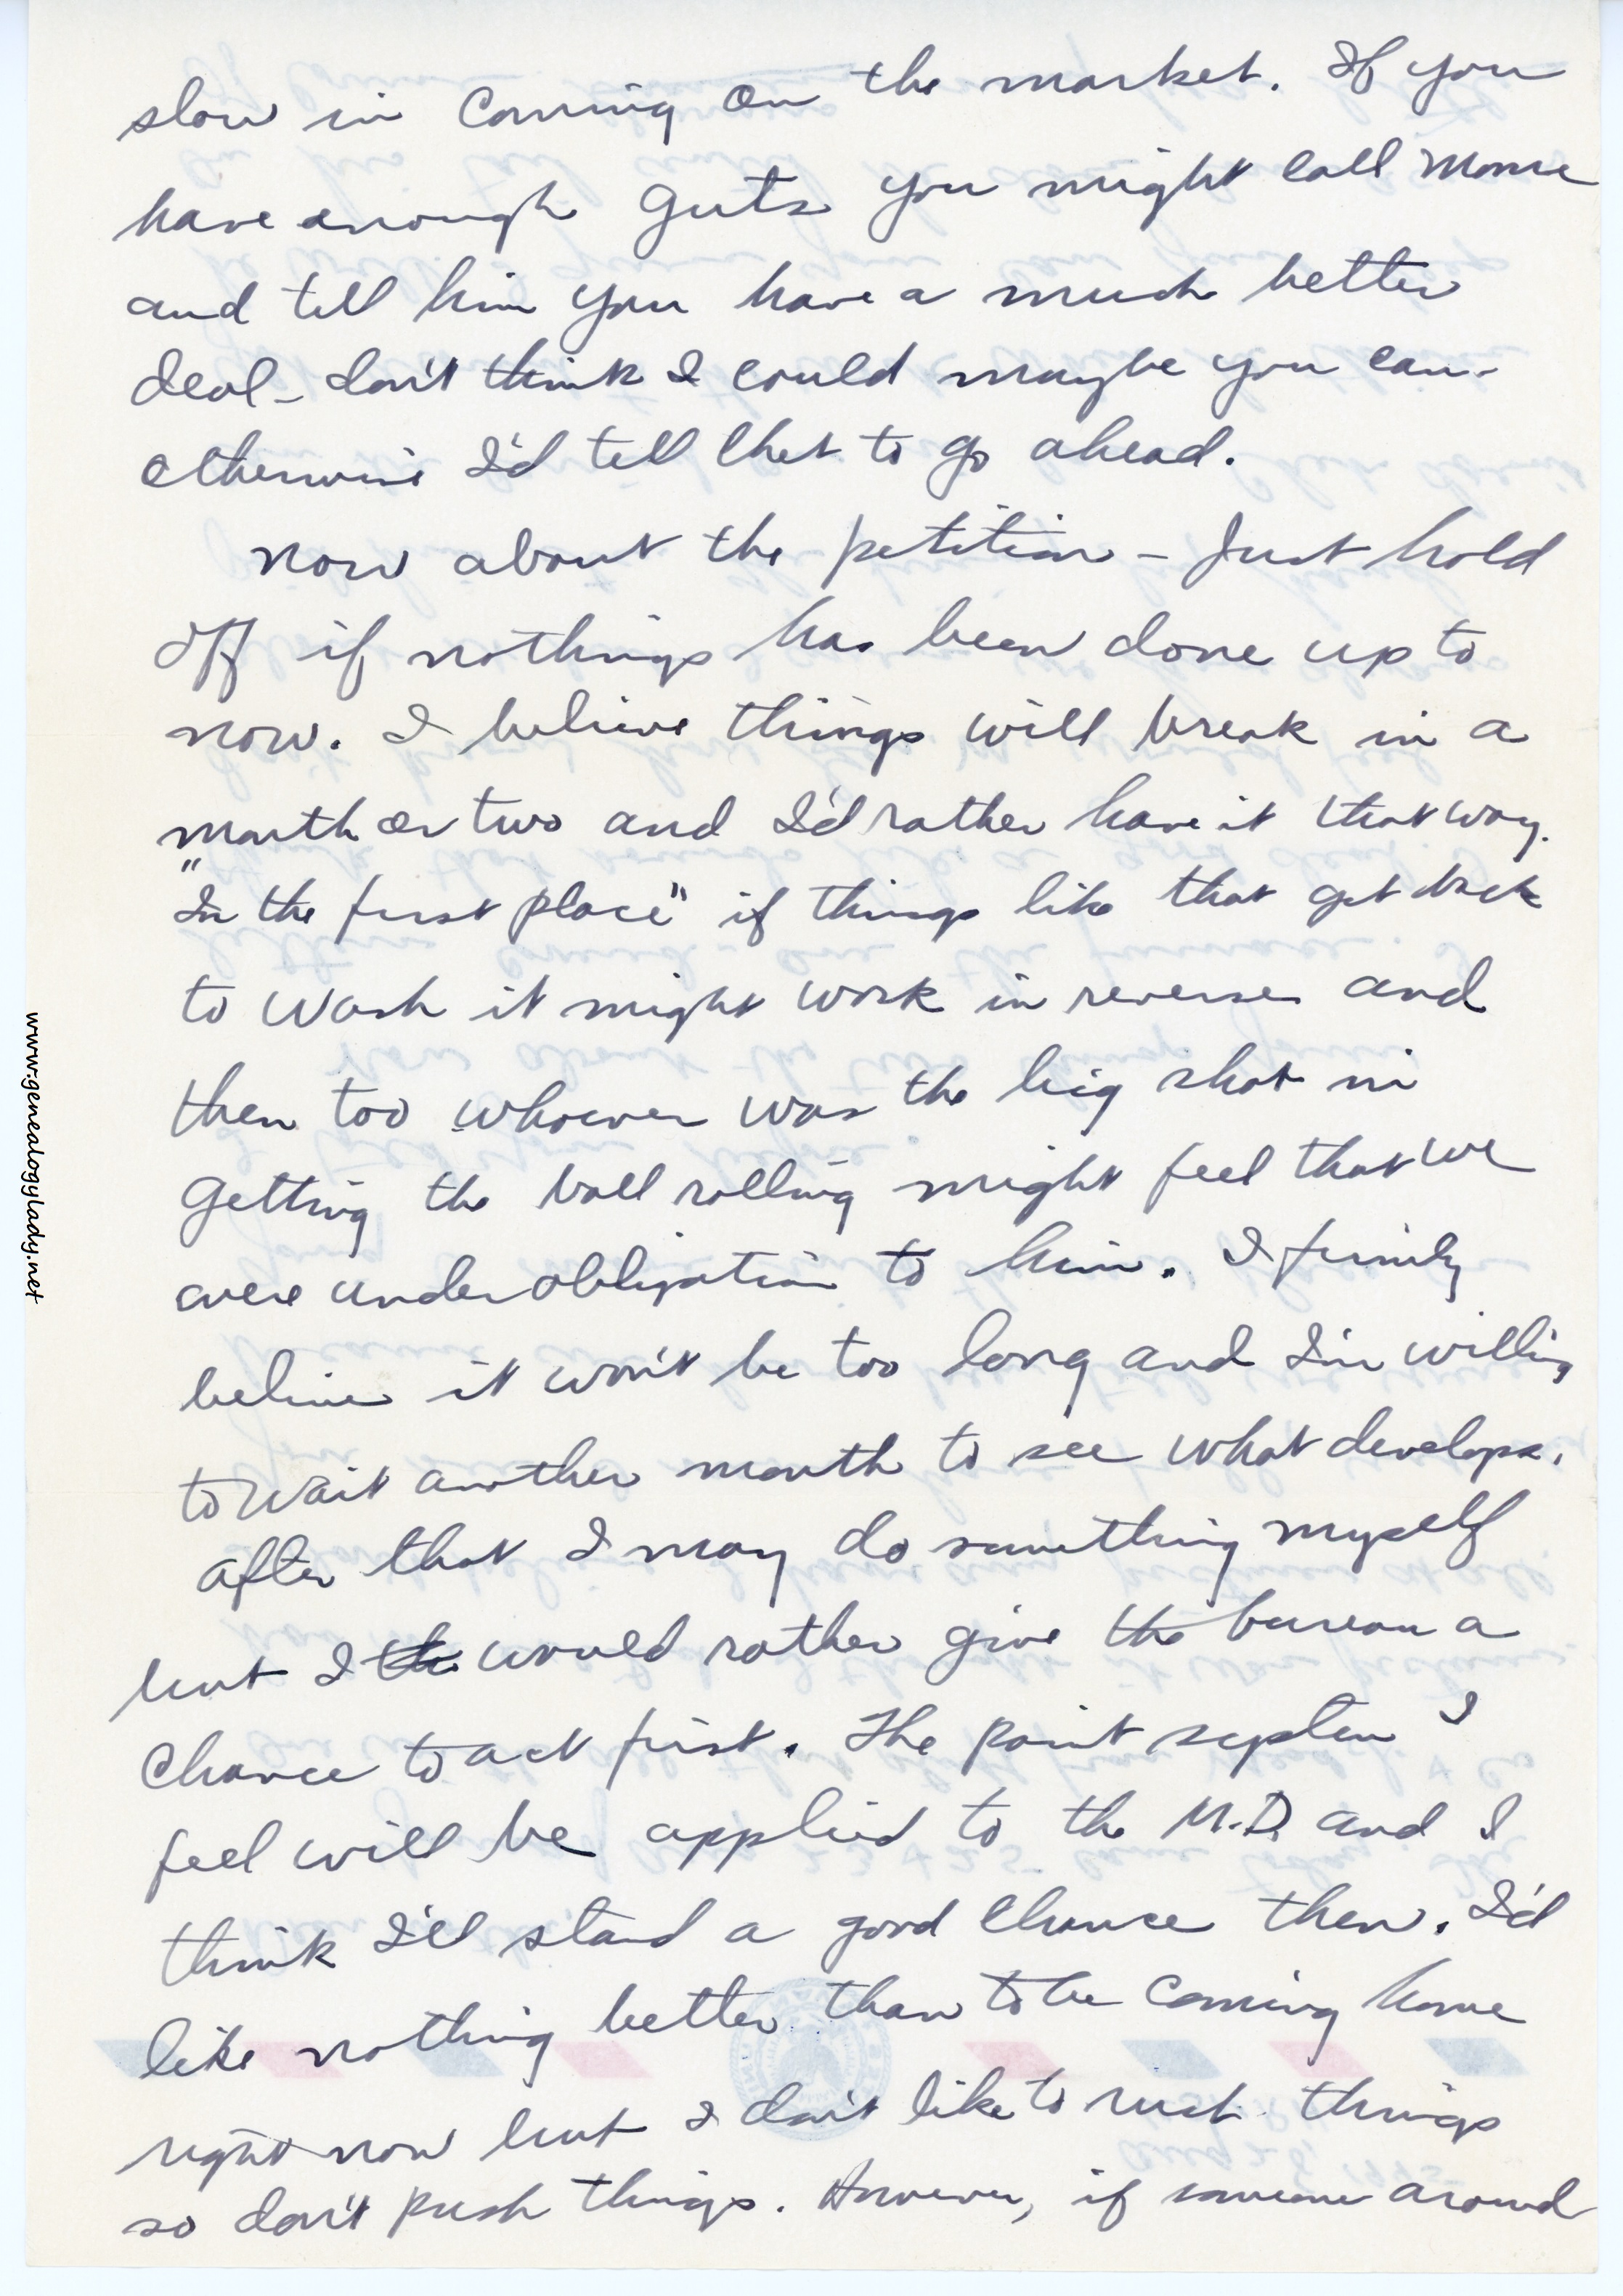 slow in coming on the market. If you
have enough guts you might call Morse
and tell him you have a much better
deal - don't think I could maybe you can -
otherwise I'd tell Chet to go ahead.
Now about the petition - Just hold
off if nothings has been done up to
now. I believe things will break in a
month or two and I'd rather have it that way.
"In the first place" if things like that get back
to Wash it might work in reverse and
then too whoever was the big shot in
getting the ball rolling might feel that we
were under obligation to him. I firmly
believe it won't be too long and I'm willing
to wait another month to see what develops.
After that I may do something myself
but I would rather give the bureau a
chance to act first. The point system I
feel will be applied to the M.D. and I
think I'll stand a good chance then. I'd
like nothing better than to be coming home
right now but I don't like to rush things
so don't push things. However, if someone around
www.genealogylady.net